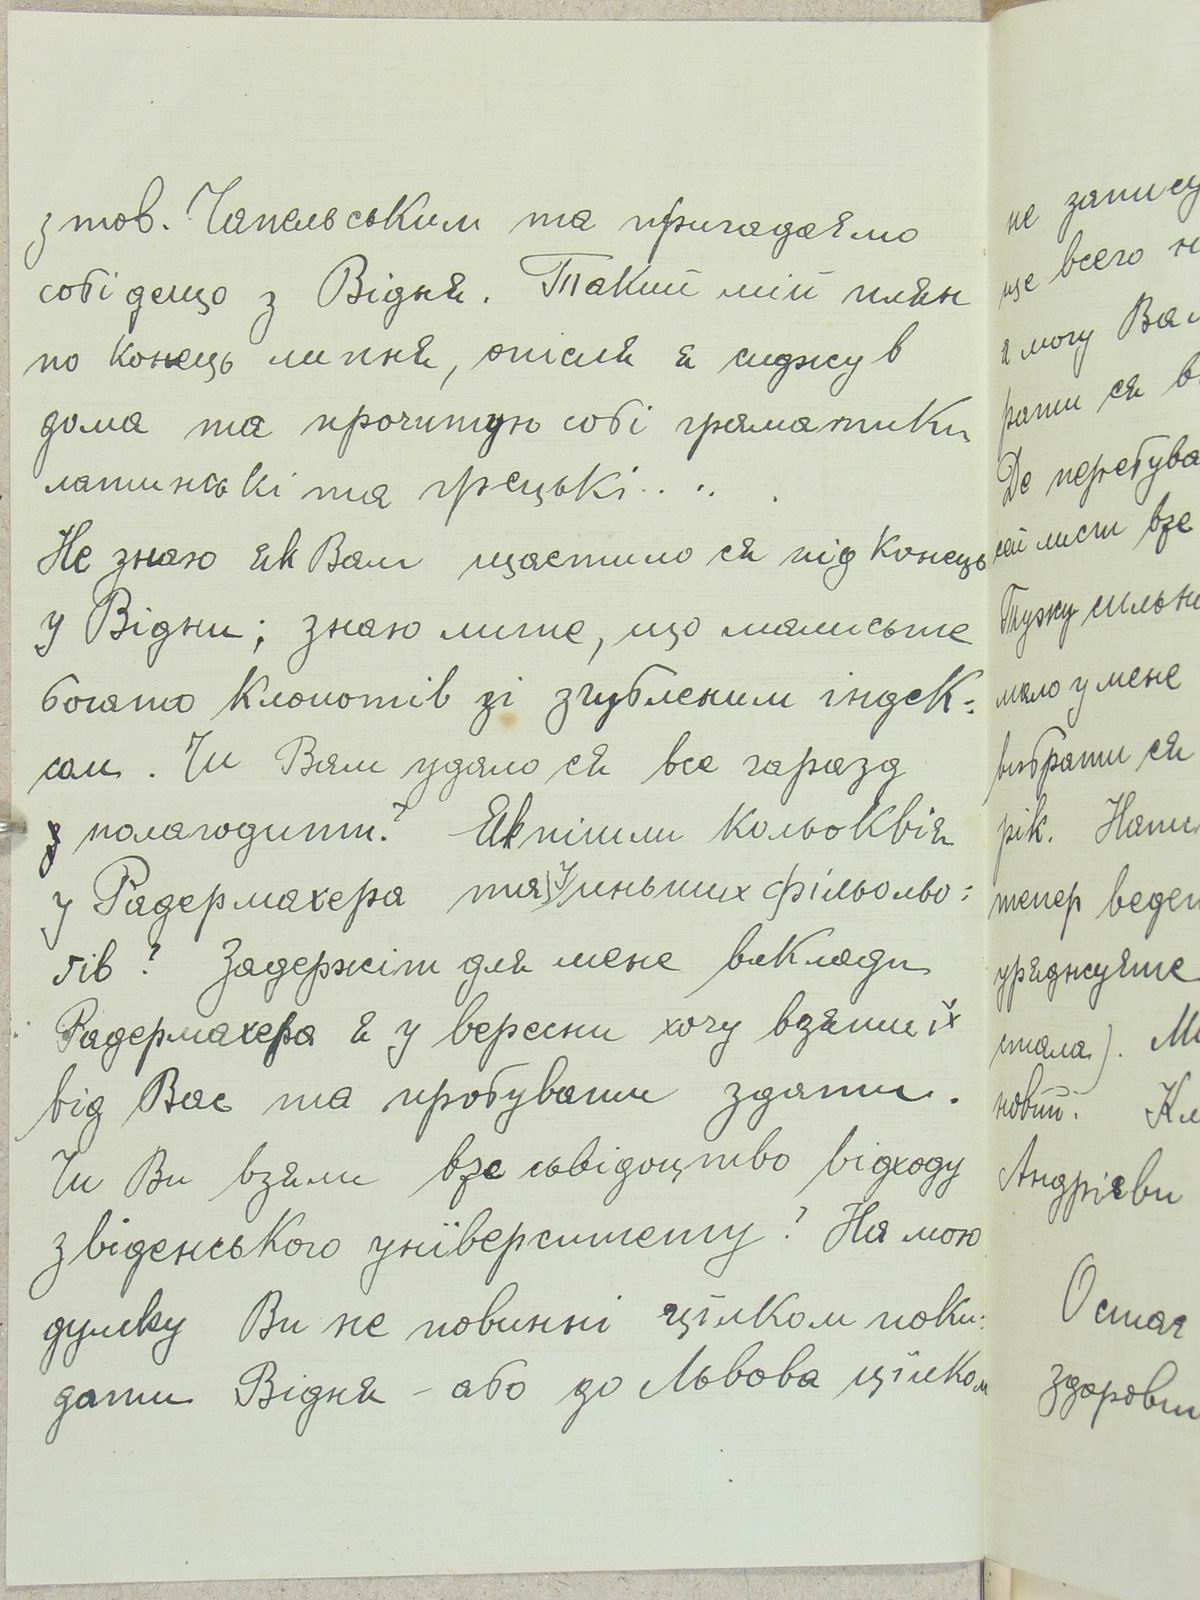 з тов. Чапельським та пригадаємо
собі дещо з Відня. Такий мій плян
по конець липня, опісля я сиджу в
дома та прочитую собі граматики
латинські та грецькі....
Не знаю як Вам щастило ся під конець
у Відни; знаю лише, що мали сьте
богато клопотів зі згубленим індек-
сом. Чи Вам удало ся все гаразд
полагодити? Як пішли кольоквія
у Радермахера та у иньших фільольо-
ґів? Задержіт для мене виклади
Радермахера я у вересни хочу взяти їх
від Вас та пробувати здати.
Чи Ви взяли вже сьвідоцтво відходу
з віденського унїверситету? На мою
думку Ви не повинні цїлком поки-
дати Відня - або до Львова цїлком
не запису
ще всего н
я могу Вам
рати ся в
Де перебува
сей лист вже
Тужу сильн
мало у мене
вибрати ся
рік. Напи
тепер веде
уряджуєте
стала). М
новий. Кл
Андрієви
Остая
здорови